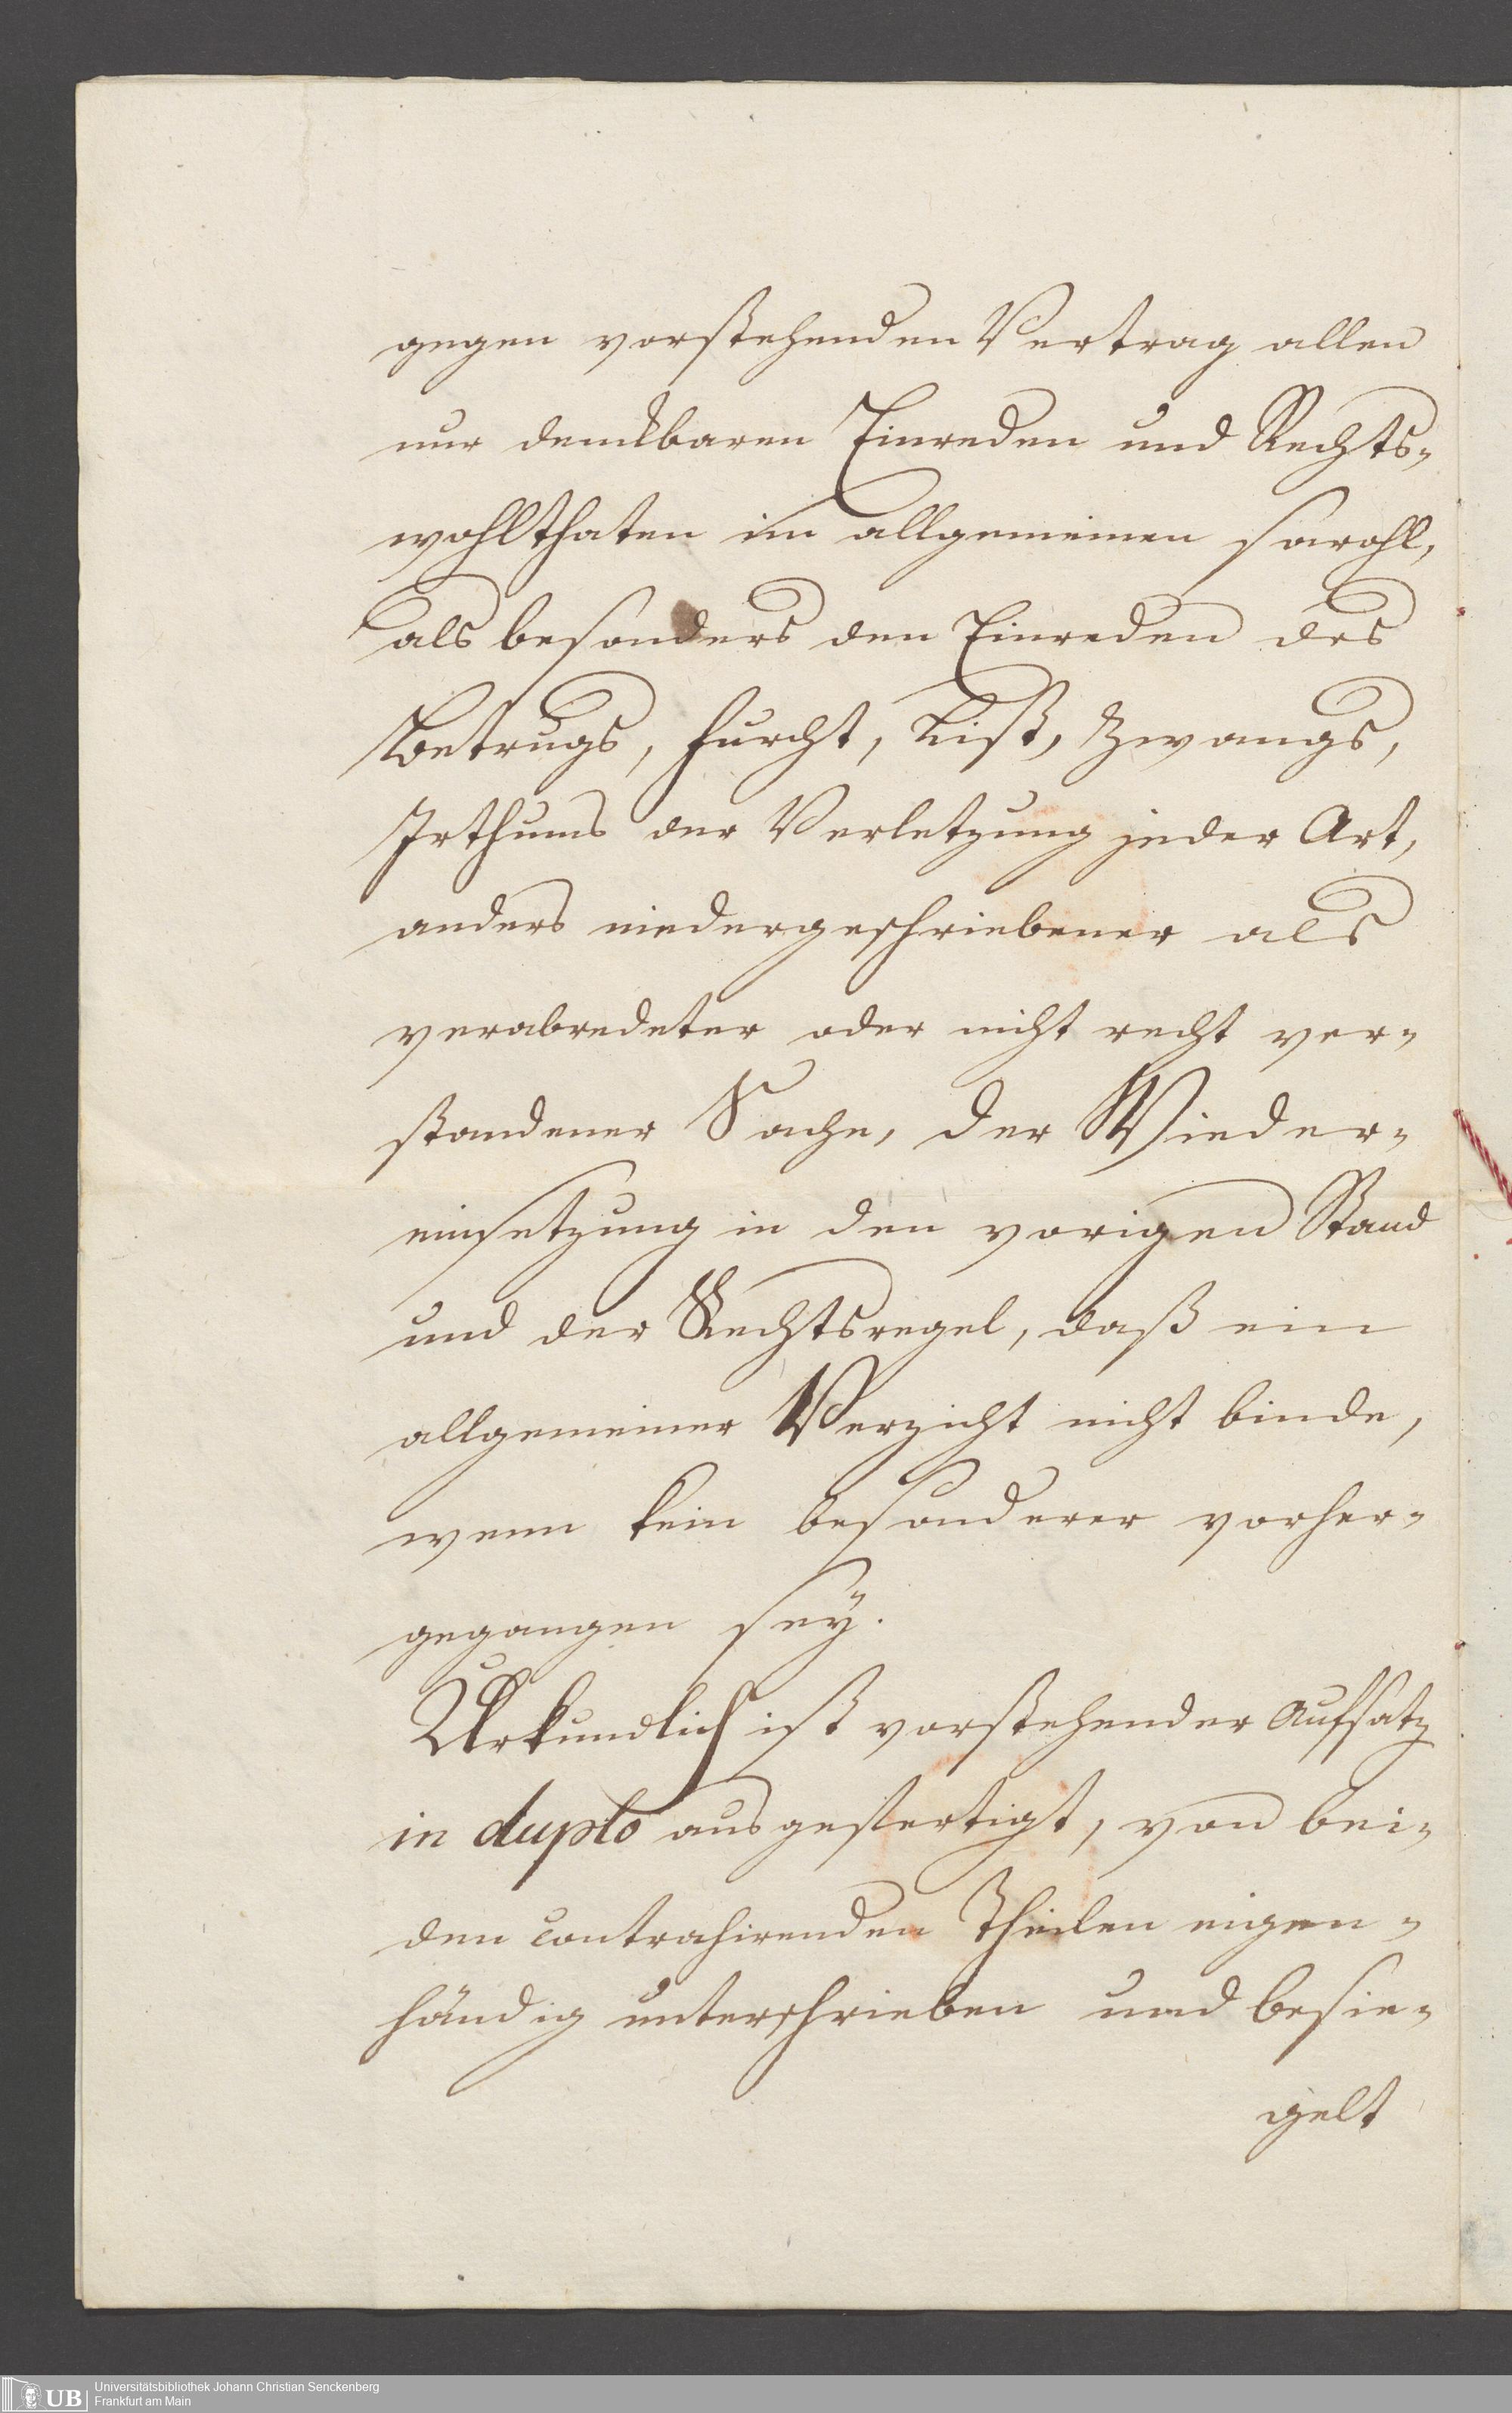 gegen vorstehenden Vertrag allen
nur denkbaren Einreden und Rechts-
wohlthaten im allgemeinen sowohl,
als besonders den Einreden des
Betrugs, Furcht, List, Zwangs,
Irthums der Verletzung jeder Art,
anders niedergeschriebener als
verabredeter oder nicht recht ver-
standener Sache, der Wieder-
einsetzung in den vorigen Stand
und der Rechtsregel, daß ein
allgemeiner Verzicht nicht binde,
wenn kein besonderer vorher-
gegangen sey.
Urkundlich ist vorstehender Aufsatz
in duplo ausgefertigt, von bei-
den contrahirenden Theilen eigen-
händig unterschrieben und besie-
gelt
UB
Universitätsbibliothek Johann Christian Senckenberg
Frankfurt am Main